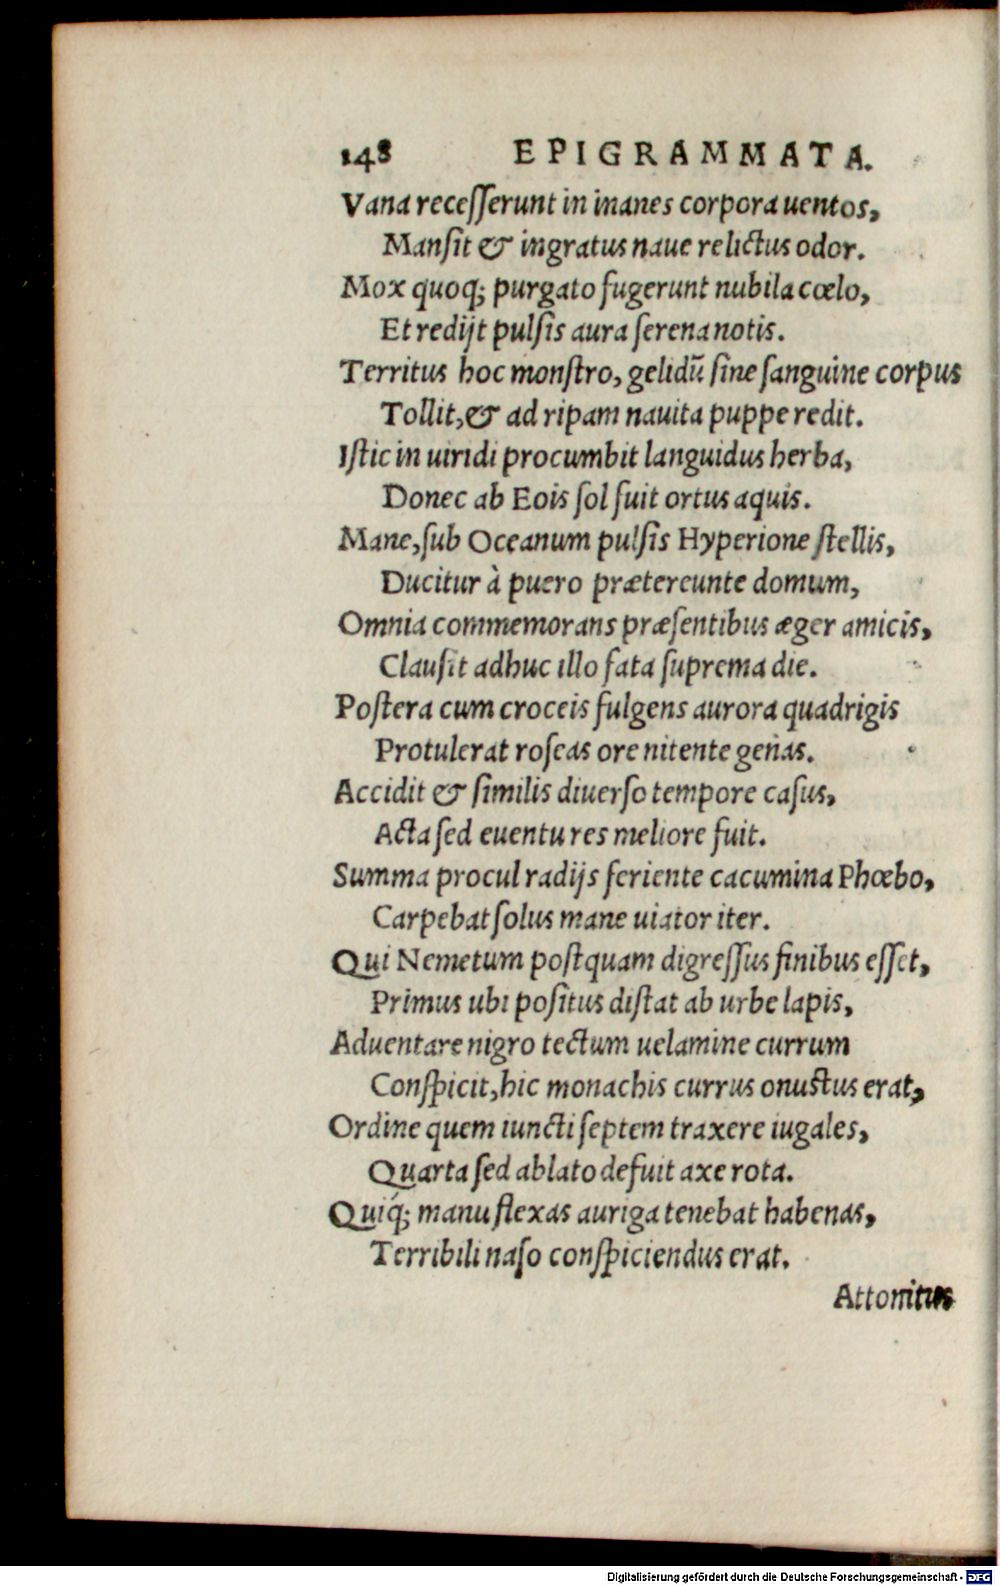 148 EPIGRAMMATA.
Vana recesſerunt in inanes corpora uentos,
Manſit & ingratus naue relictus odor.
Mox quoq; purgato fugerunt nubila cœlo,
Et redijt pulſis aura ſerena notis.
Territus hoc monſtro, gelidũ ſine ſanguine corpus
Tollit, & ad ripam nauita puppe redit.
Iſtic in uiridi procumbit languidus herba,
Donec ab Eois ſol fuit ortus aquis.
Mane, ſub Oceanum pulſis Hyperione ſtellis,
Ducitur à puero prætereunte domum,
Omnia commemorans præſentibus æger amicis,
Clauſit adhuc illo fata ſuprema die.
Poſtera cum croceis fulgens aurora quadrigis
Protulerat roſeas ore nitente genas.
Accidit & ſimilis diuerſo tempore caſus,
Acta ſed euentu res meliore fuit.
Summa procul radijs feriente cacumina Phœbo,
Carpebat ſolus mane uiator iter.
Qui Nemetum poſtquam digreſſus finibus eſſet,
Primus ubi poſitus diſtat ab urbe lapis,
Aduentare nigro tectum uelamine currum
Conſpicit, hic monachis currus onuſtus erat,
Ordine quem iuncti ſeptem traxere iugales,
Quarta ſed ablato defuit axe rota.
Quiq́; manu flexas auriga tenebat habenas,
Terribili naſo conſpiciendus erat.
Attonitus
Digitalisierung gefördert durch die Deutsche Forschungsgemeinschaft - DFG